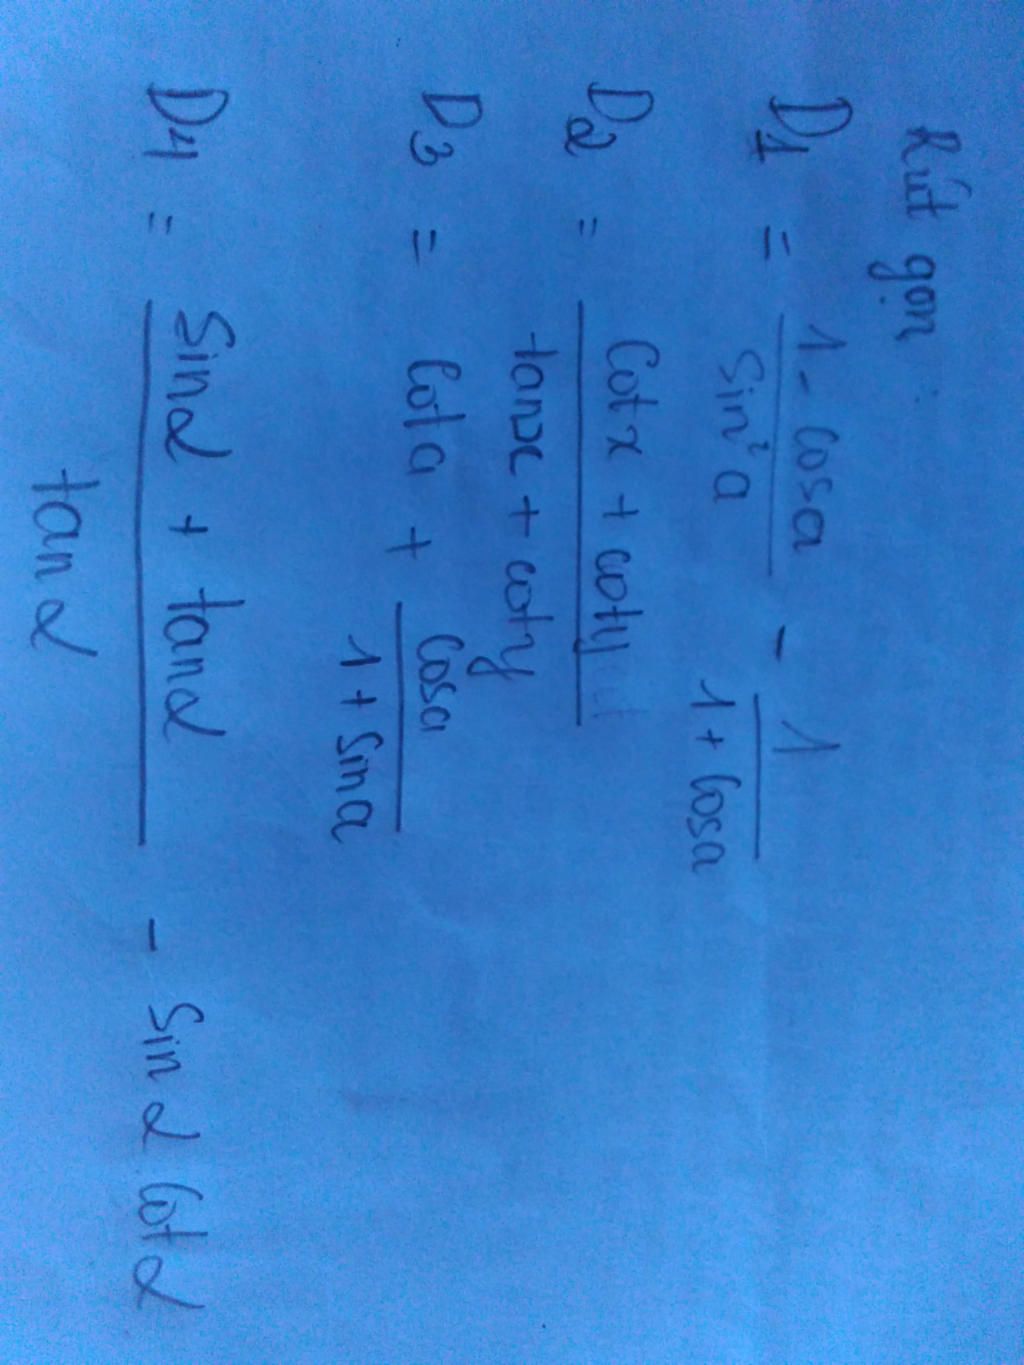 Rút gọn:
D1 = (1 - cosa)/(sin²a) - 1/(1 + cosa)
D2 = (cotx + coty)/(tanx + coty)
D3 = cota + cosa/(1 + sina)
D4 = (sinα + tanα)/(tanα) - sinα cotα